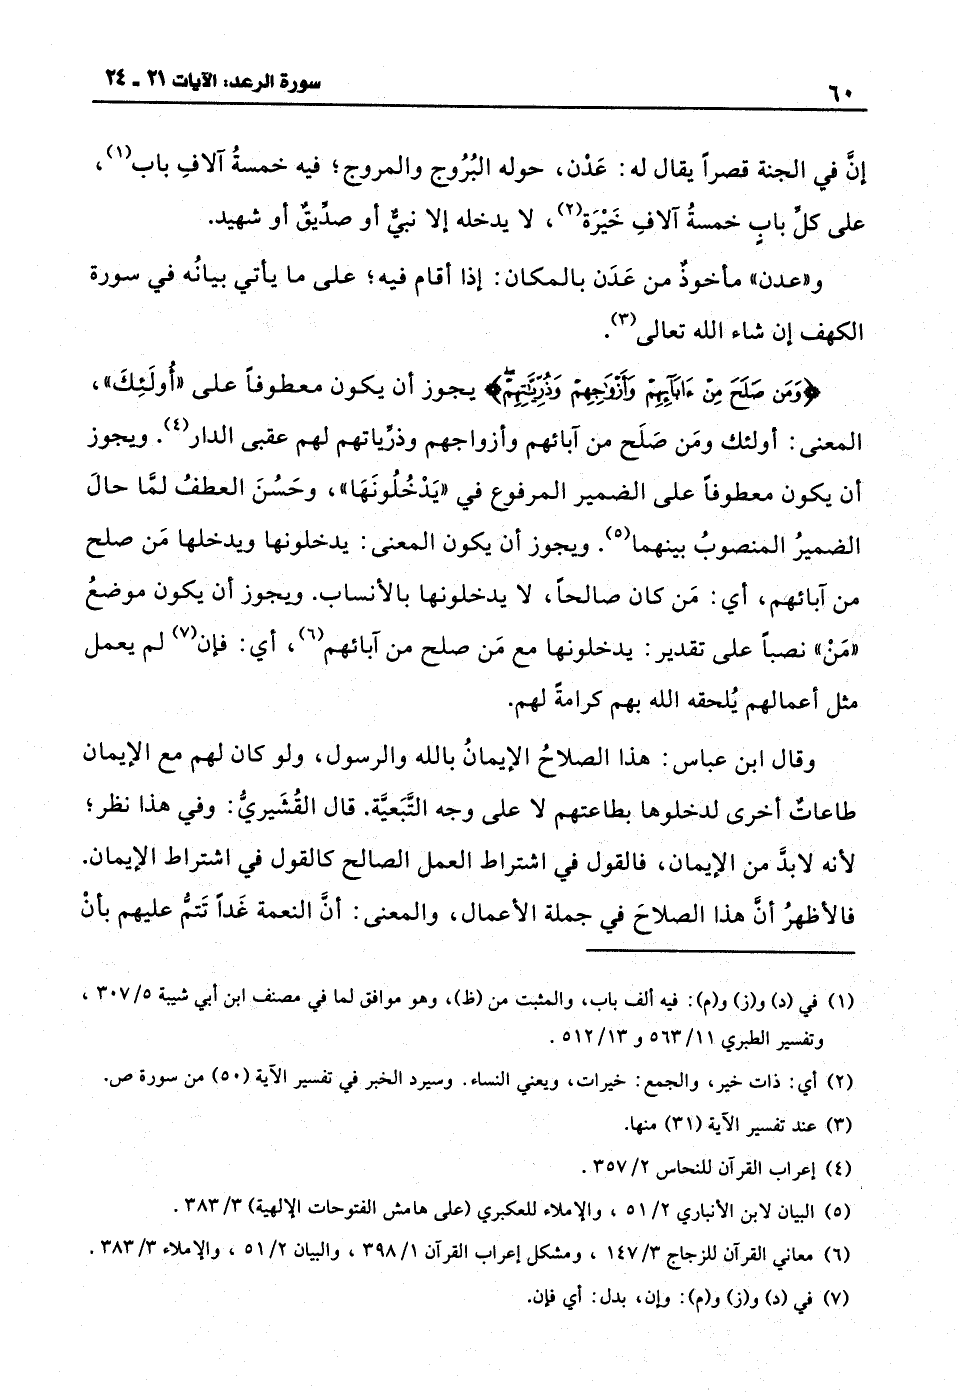 ٦٠
سورة الرعد: الآيات ٢١ - ٢٤
إنَّ في الجنة قصراً يقال له: عَدْن، حوله البُرُوج والمروج؛ فيه خمسةُ آلافِ باب(١)،
على كلِّ بابٍ خمسةُ آلافِ خَيْرَة(٢)، لا يدخله إلا نبيٌّ أو صدِّيقٌ أو شهيد.
و«عدن» مأخوذٌ من عَدَن بالمكان: إذا أقام فيه؛ على ما يأتي بيانُه في سورة
الكهف إن شاء الله تعالى(٣).
﴿وَمَن صَلَحَ مِنْ ءَابَآيِهِمْ وَأَزْوَٰجِهِمْ وَذُرِّيَّٰتِهِمْۖ﴾ يجوز أن يكون معطوفاً على «أُولَئِكَ»،
المعنى: أولئك ومَن صَلَح من آبائهم وأزواجهم وذرِّياتهم لهم عقبى الدار(٤). ويجوز
أن يكون معطوفاً على الضمير المرفوع في «يَدْخُلُونَهَا»، وحَسُنَ العطفُ لمَّا حالَ
الضميرُ المنصوبُ بينهما(٥). ويجوز أن يكون المعنى: يدخلونها ويدخلها مَن صلح
من آبائهم، أي: مَن كان صالحاً، لا يدخلونها بالأنساب. ويجوز أن يكون موضعُ
«مَنْ» نصباً على تقدير: يدخلونها مع مَن صلح من آبائهم(٦)، أي: فإن(٧) لم يعمل
مثل أعمالهم يُلحقه الله بهم كرامةً لهم.
وقال ابن عباس: هذا الصلاحُ الإيمانُ بالله والرسول، ولو كان لهم مع الإيمان
طاعاتٌ أخرى لدخلوها بطاعتهم لا على وجه التَّبَعيَّة. قال القُشَيريُّ: وفي هذا نظر؛
لأنه لابدَّ من الإيمان، فالقول في اشتراط العمل الصالح كالقول في اشتراط الإيمان.
فالأظهرُ أنَّ هذا الصلاحَ في جملة الأعمال، والمعنى: أنَّ النعمة غَداً تَتمُّ عليهم بأنْ
(١) في (د) و(ز) و(م): فيه ألف باب، والمثبت من (ظ)، وهو موافق لما في مصنف ابن أبي شيبة ٥/ ٣٠٧ ،
وتفسير الطبري ١١/ ٥٦٣ و ١٣/ ٥١٢ .
(٢) أي: ذات خير، والجمع: خيرات، ويعني النساء. وسيرد الخبر في تفسير الآية (٥٠) من سورة ص.
(٣) عند تفسير الآية (٣١) منها.
(٤) إعراب القرآن للنحاس ٢/ ٣٥٧ .
(٥) البيان لابن الأنباري ٢/ ٥١ ، والإملاء للعكبري (على هامش الفتوحات الإلهية) ٣/ ٣٨٣ .
(٦) معاني القرآن للزجاج ٣/ ١٤٧ ، ومشكل إعراب القرآن ١/ ٣٩٨ ، والبيان ٢/ ٥١ ، والإملاء ٣/ ٣٨٣ .
(٧) في (د) و(ز) و(م): وإن، بدل: أي فإن.